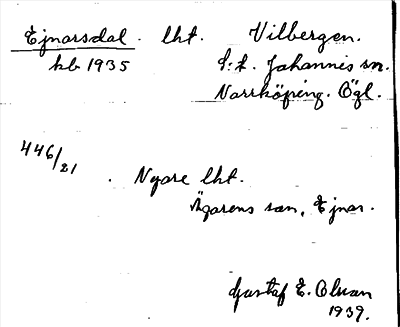 Ejnarsdal. lht. Vilbergen.
kb 1935 S:t. Johannis sn.
Norrköping. Ögl.
446/21
Nyare lht.
Ägarens son, Ejnar.
Gustaf E. Olson
1939.